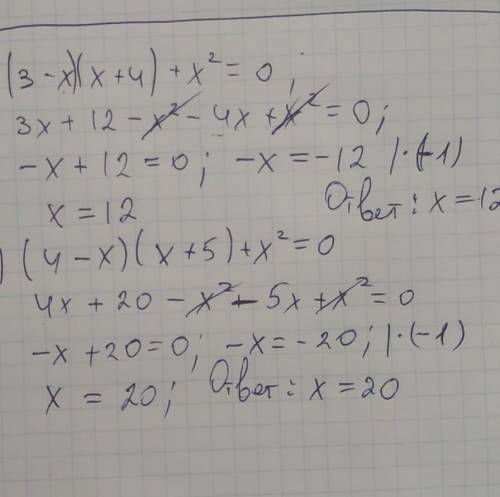 (3-x)(x+4)+x²=0;
3x+12-x²-4x+x²=0;
-x+12=0; -x=-12 |·(-1)
x=12 Ответ: x=12
) (4-x)(x+5)+x²=0
4x+20-x²-5x+x²=0
-x+20=0; -x=-20; |·(-1)
x=20; Ответ: x=20